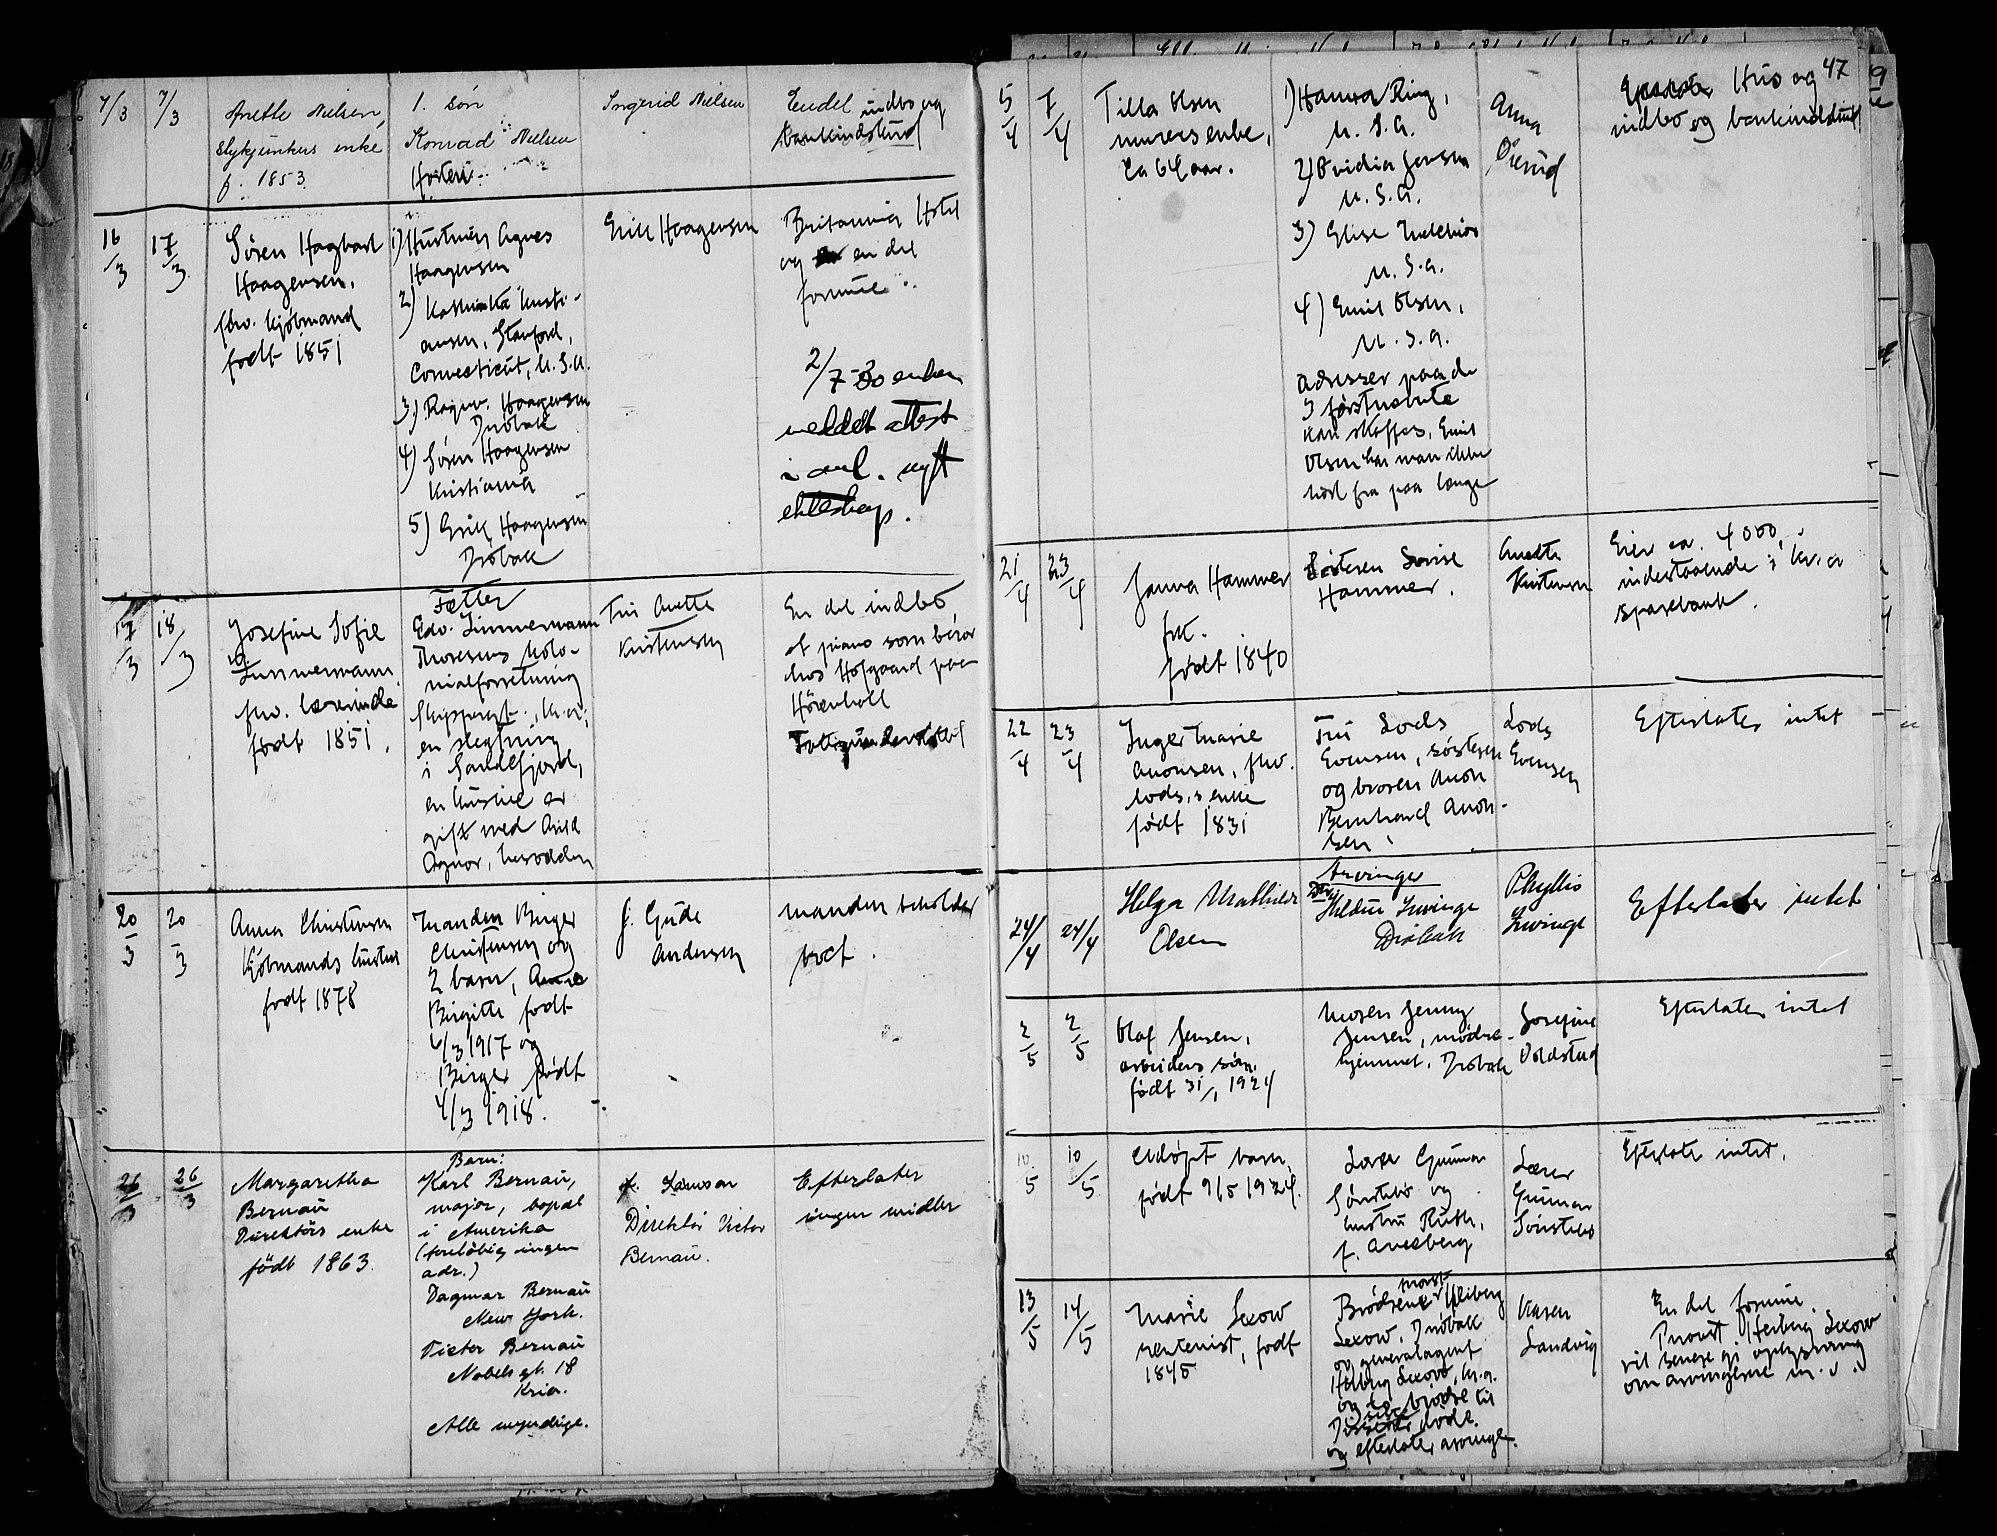 7/3
7/3
Anette Nielsen,
enke
f. 1853
1. søn
Konrad Nielsen
Ingerid Nielsen
Endel indbo og
bankindskud
16/3
17/3
Søren Hagbart
Haagensen,
fhv. kjøbmand
født 1851
1) Hustruen Agnes
Haagensen
2) Kristi-
ansen, Stanford,
Connecticut, U.S.A.
3) Ragnv. Haagensen
Drøbak
4) Søren Haagensen
Kristiania
5) Erik Haagensen
Drøbak
Erik Haagensen
Britannia Hotel
og en del
formue.
2/7-30 enken
meldt attest
i anl. nytt
ekteskap.
17/3
18/3
Josefine Sofie
Zimmermann
fhv. lærerinde
født 1851.
Fætter
Edv. Zimmermann
Thoresens kolo-
nialforretning
Skippergt., Kr.a,
en slegtning
i Sandefjord,
en kusine er
gift med
Agnor,
Fru Anette
Kristensen
En del indbo,
et piano som beror
hos Hofgaard paa
20/3
20/3
Anna Christensen
kjøbmands hustru
født 1878
Manden Birger
Christensen og
2 barn, Anne
Birgitte født
6/3 1917 og
Birger født
4/3 1918.
J. Gude
Andersen
Manden beholder
boet.
26/3
26/3
Margaretha
Bernau
Direktørs enke
født 1863.
Barn:
Karl Bernau,
major, bopæl
i Amerika
(foreløbig ingen
adr.)
Dagmar Bernau
New York.
Victor Bernau
Nobels gt. 18
Kria.
Alle myndige.
Direktør Victor
Bernau.
Efterlater
ingen midler
47
5/4
7/4
Tilla Olsen
murers enke,
ca 64 aar.
1) Hanna Ring,
U.S.A.
2) Ovidia Jensen
U.S.A.
3) Elise Melchior
U.S.A.
4) Emil Olsen,
U.S.A.
Adresser paa de
3 førstnævnte
kan skaffes, Emil
Olsen har man ikke
hørt fra paa længe
Anna
Hus og
indbo og bankindskud
21/4
23/4
Janna Hammer
frk.
født 1840
Søsteren Lovise
Hammer.
Anette
Kristensen
Eier ca. 4000,-
indestaaende i Kr.a
sparebank.
22/4
23/4
Inger Marie
Aronsen, fhv.
lods.s enke
født 1831
Fru Lods
Evensen, søsteren
og broren Aron
Bernhard Aron-
sen.
Lods
Evensen
Efterlater intet
24/4
24/4
Helga Mathilde
Olsen
Arvinger
Zwinge
Drøbak
Phyllis
Zwinge
Efterlater intet
2/5
2/5
Olaf Jensen,
arbeiders søn,
født 31/1 1924
Moren Jenny
Jensen, mødre-
hjemmet, Drøbak
Josefine
Voldstad
Efterlater intet
10/5
10/5
Udøpt barn,
født 9/5 1924.
Lærer Gunnar
Sønstebø og
hustru Ruth,
f. Avesberg
Lærer
Gunnar
Sønstebø
Efterlater intet.
13/5
14/5
Marie Lexow
rentenist, født
1845
Brødrene provst Heiberg
Lexow, Drøbak
og generalagent
Heiberg Lexow, Kr.a.
og to brødre til
døde
og efterlater arvinger.
Karen
Sandvig
En del formue.
Provst Heiberg Lexow
vil senere gi oplysning
om arvingerne m.v.